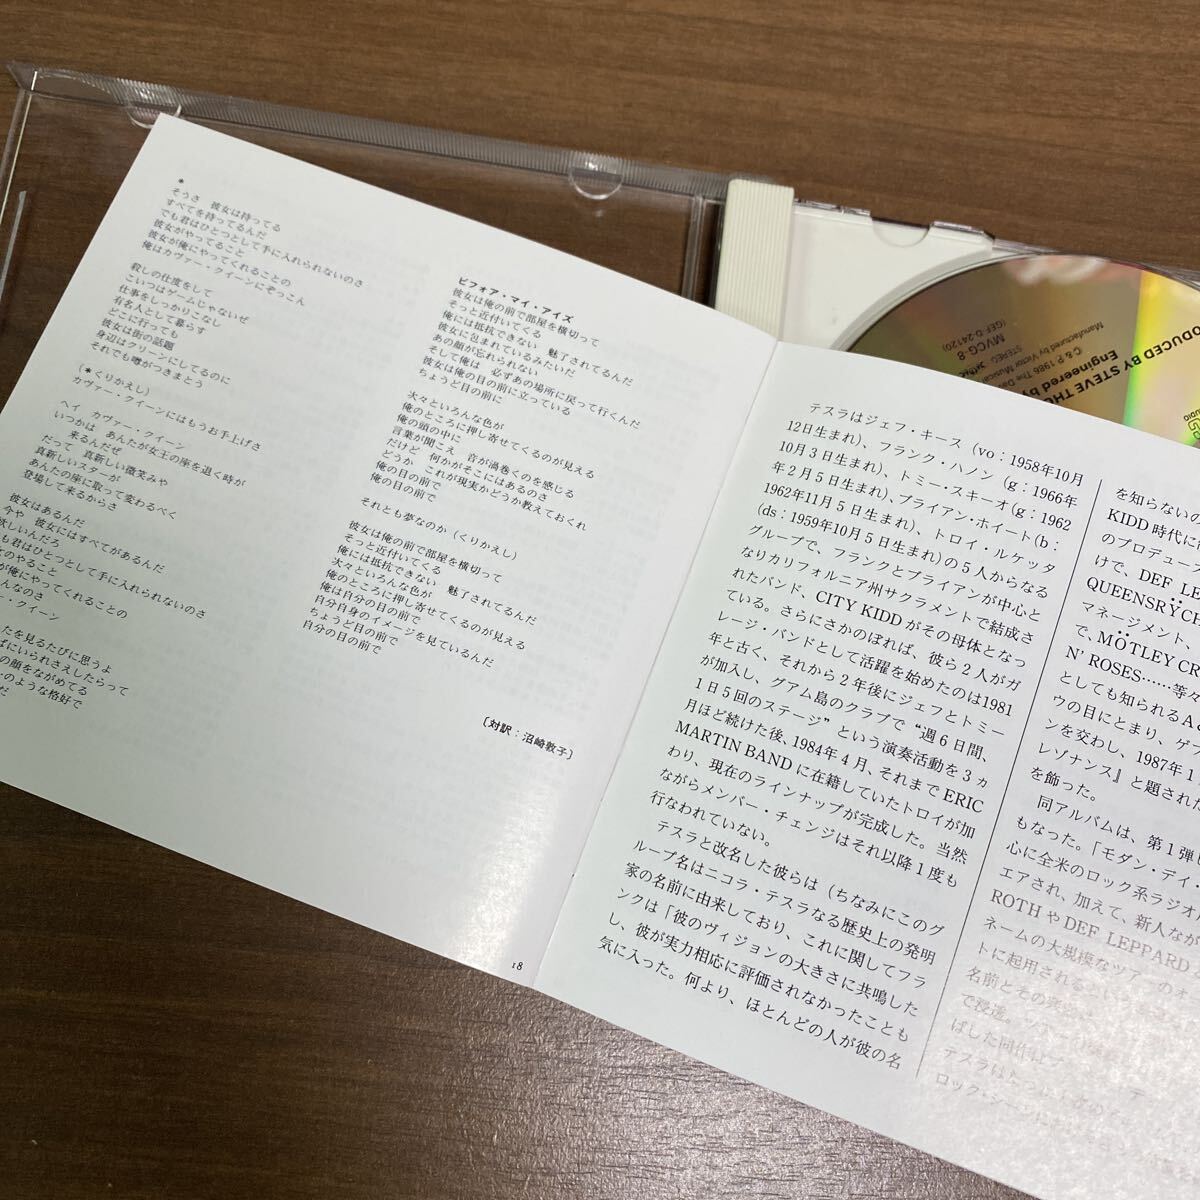 *
そうさ 彼女は待ってる
すべてを待ってるんだ
でも君はひとつとして手に入れられないのさ
彼女がやってること
彼女が俺にやってくれることの
俺はカヴァー・クイーンにぞっこん
殺しの仕度をして
こいつはゲームじゃないぜ
仕事をしっかりこなし
有名人として暮らす
どこに行っても
彼女は街の話題
身辺はクリーンにしてるのに
それでも噂がつきまとう
(*くりかえし)
カヴァー・クイーンにはもうお手上げさ
ヘイ カヴァー・クイーン
いつかは あんたが女王の座を退く時が
来るんだぜ
だって 真新しい微笑みや
真新しいスターが
あんたの座に取って変わるべく
登場して来るからさ
彼女はあるんだ
今や 彼女にはすべてがあるんだ
欲しいんだろ
も君はひとつとして手に入れられないのさ
とのやること
が俺にやってくれることの
んなのさ
・クイーン
たを見るたびに思うよ
ばにいられさえしたらって
の顔をながめてる
ーのような格好で
だ
ビフォア・マイ・アイズ
彼女は俺の前で部屋を横切って
そっと近付いてくる
俺には抵抗できない 魅了されてるんだ
彼女に包まれているみたいだ
あの顔が忘れられない
そして俺は 必ずあの場所に戻って行くんだ
彼女は俺の目の前に立っている
ちょうど目の前に
次々といろんな色が
俺のところに押し寄せてくるのが見える
俺の頭の中に
言葉が聞こえ 音が渦巻くのを感じる
だけど 何かがそこにはあるのさ
どうか これが現実かどうか教えておくれ
俺の目の前で
俺の目の前で
それとも夢なのか(くりかえし)
彼女は俺の前で部屋を横切って
そっと近付いてくる
俺には抵抗できない 魅了されてるんだ
次々といろんな色が
俺のところに押し寄せてくるのが見える
俺は自分の目の前で
自分自身のイメージを見ているんだ
ちょうど目の前で
自分の目の前で
〔対訳:沼崎敦子〕
18
テスラはジェフ・キース(vo:1958年10月
12日生まれ)、フランク・ハノン(g:1966年
10月3日生まれ)、トミー・スキーオ(g:1962
年2月5日生まれ)、ブライアン・ホイート(b:
1962年11月5日生まれ)、トロイ・ルケッタ
(ds:1959年10月5日生まれ)の5人からなる
グループで、フランクとブライアンが中心と
なりカリフォルニア州サクラメントで結成さ
れたバンド、CITY KIDDがその母体となっ
ている。さらにさかのぼれば、彼ら2人がガ
レージ・バンドとして活躍を始めたのは1981
年と古く、それから2年後にジェフとトミー
が加入し、グアム島のクラブで“週6日間、
1日5回のステージ”という演奏活動を3ヵ
月ほど続けた後、1984年4月、それまでERIC
MARTIN BANDに在籍していたトロイが加
わり、現在のラインナップが完成した。当然
ながらメンバー・チェンジはそれ以降1度も
行なわれていない。
テスラと改名した彼らは(ちなみにこのグ
ループ名はニコラ・テスラなる歴史上の発明
家の名前に由来しており、これに関してフラ
ンクは「彼のヴィジョンの大きさに共鳴した
し、彼が実力相応に評価されなかったことも
気に入った。何より、ほとんどの人が彼の名
を知らないの
KIDD時代に
のプロデュース
けで、DEF LE
QUEENSRŸCH
マネージメント、
で、MÖTLEY CR
N' ROSES……等々
としても知られるA&
ウの目にとまり、ゲフ
ンを交わし、1987年1
レゾナンス』と題された
を飾った。
同アルバムは、第1弾
もなった。「モダン・デイ・
心に全米のロック系ラジオ
エアされ、加えて、新人なが
ROTHやDEF LEPPARD
ネームの大規模なツアーのオ
トに起用されるという
名前とその
で浸透。
ばした同作
テスラは
ロック・シーン
ODUCED BY STEVE THO
Engineered by
C & P 1986 The Da
Manufactured by Victor Musical
STEREO
MVCG-8
(GEF-D-24120)